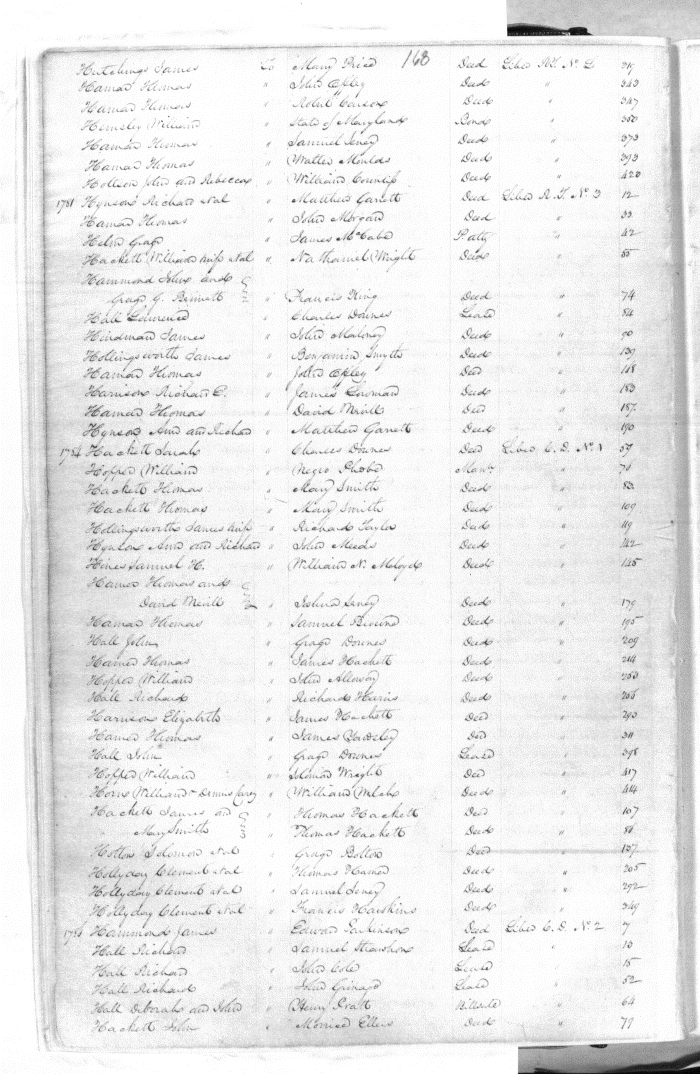 168
Hutchings James To Mary Price Deed Liber R.T. No. L
Hamar Thomas " John Exley Deed " 343
Hamar Thomas " Robt. Carson Deed " 347
Hemsley William " State of Maryland Bond " 350
Hamar Thomas " Samuel Seney Deed " 373
Hamar Thomas " Walter Moulds Deed " 393
John and Rebecca " William Countiss Deed " 420
1781 Hynson Richard et al " Matthew Garrett Deed Liber R.T. No. 3 12
Hamar Thomas " John Morgan Deed " 33
Helm Grage " James McCabe " 42
Hackett William et al " Nathaniel Wright Deed " 55
Hammond John and
Grage G. Bennett " Francis King Deed " 74
Hall Laurence " Charles Downes Lease " 84
Hindman James " John Maloney Deed " 90
Hollingsworth James " Benjamin Smyth Deed " 139
Hamar Thomas " John Exley Deed " 148
Harrison Richard C. " James Deed " 183
Hamar Thomas " David Deed " 187
Hynson Ann and Richard " Matthew Garrett Deed " 190
1784 Hackett Sarah " Charles Downes Deed Liber C.D. No. 1 59
Hopper William " Negro Phebe "
Hackett Thomas " Mary Smith Deed " 83
Hackett Thomas " Mary Smith Deed " 109
Hollingsworth James " Richard Taylor Deed " 119
Ann and Richard " John Meeds Deed " 142
Hines Samuel H. " William N. Deed " 145
Hamar Thomas and
David " Joshua Seney Deed " 179
Hamar Thomas " Samuel Deed " 195
Hall John " Grage Downes Deed " 209
Hamar Thomas " James Hackett Deed " 214
Hopper William " John Alloway Deed "
Hall Richard " Richard Harris Deed "
Harrison Elizabeth " James Hackett Deed " 293
Hamar Thomas " James Deed " 311
Hall John " Grage Downes Lease " 398
Hopper William " Solomon Wright Deed " 417
William & Dennis Carey " William Welch Deed " 444
Hackett James and " Thomas Hackett Deed " 107
Mary Smith " Thomas Hackett Deed " 86
Solomon et al " Grage Bolton Deed " 137
Hollyday Clement et al " Thomas Hamar Deed " 205
Hollyday Clement et al " Samuel Seney Deed " 292
Hollyday Clement et al " Francis Haskins Deed " 349
Hammond James " Edward Deed Liber C.D. No. 2 7
Hall Richard " Samuel Lease " 10
Hall Richard " John Cole Lease " 15
Hall Richard " John Lease " 52
Hall Deborah and John " Henry Pratt Bill Sale " 64
Hackett John " Deed " 79